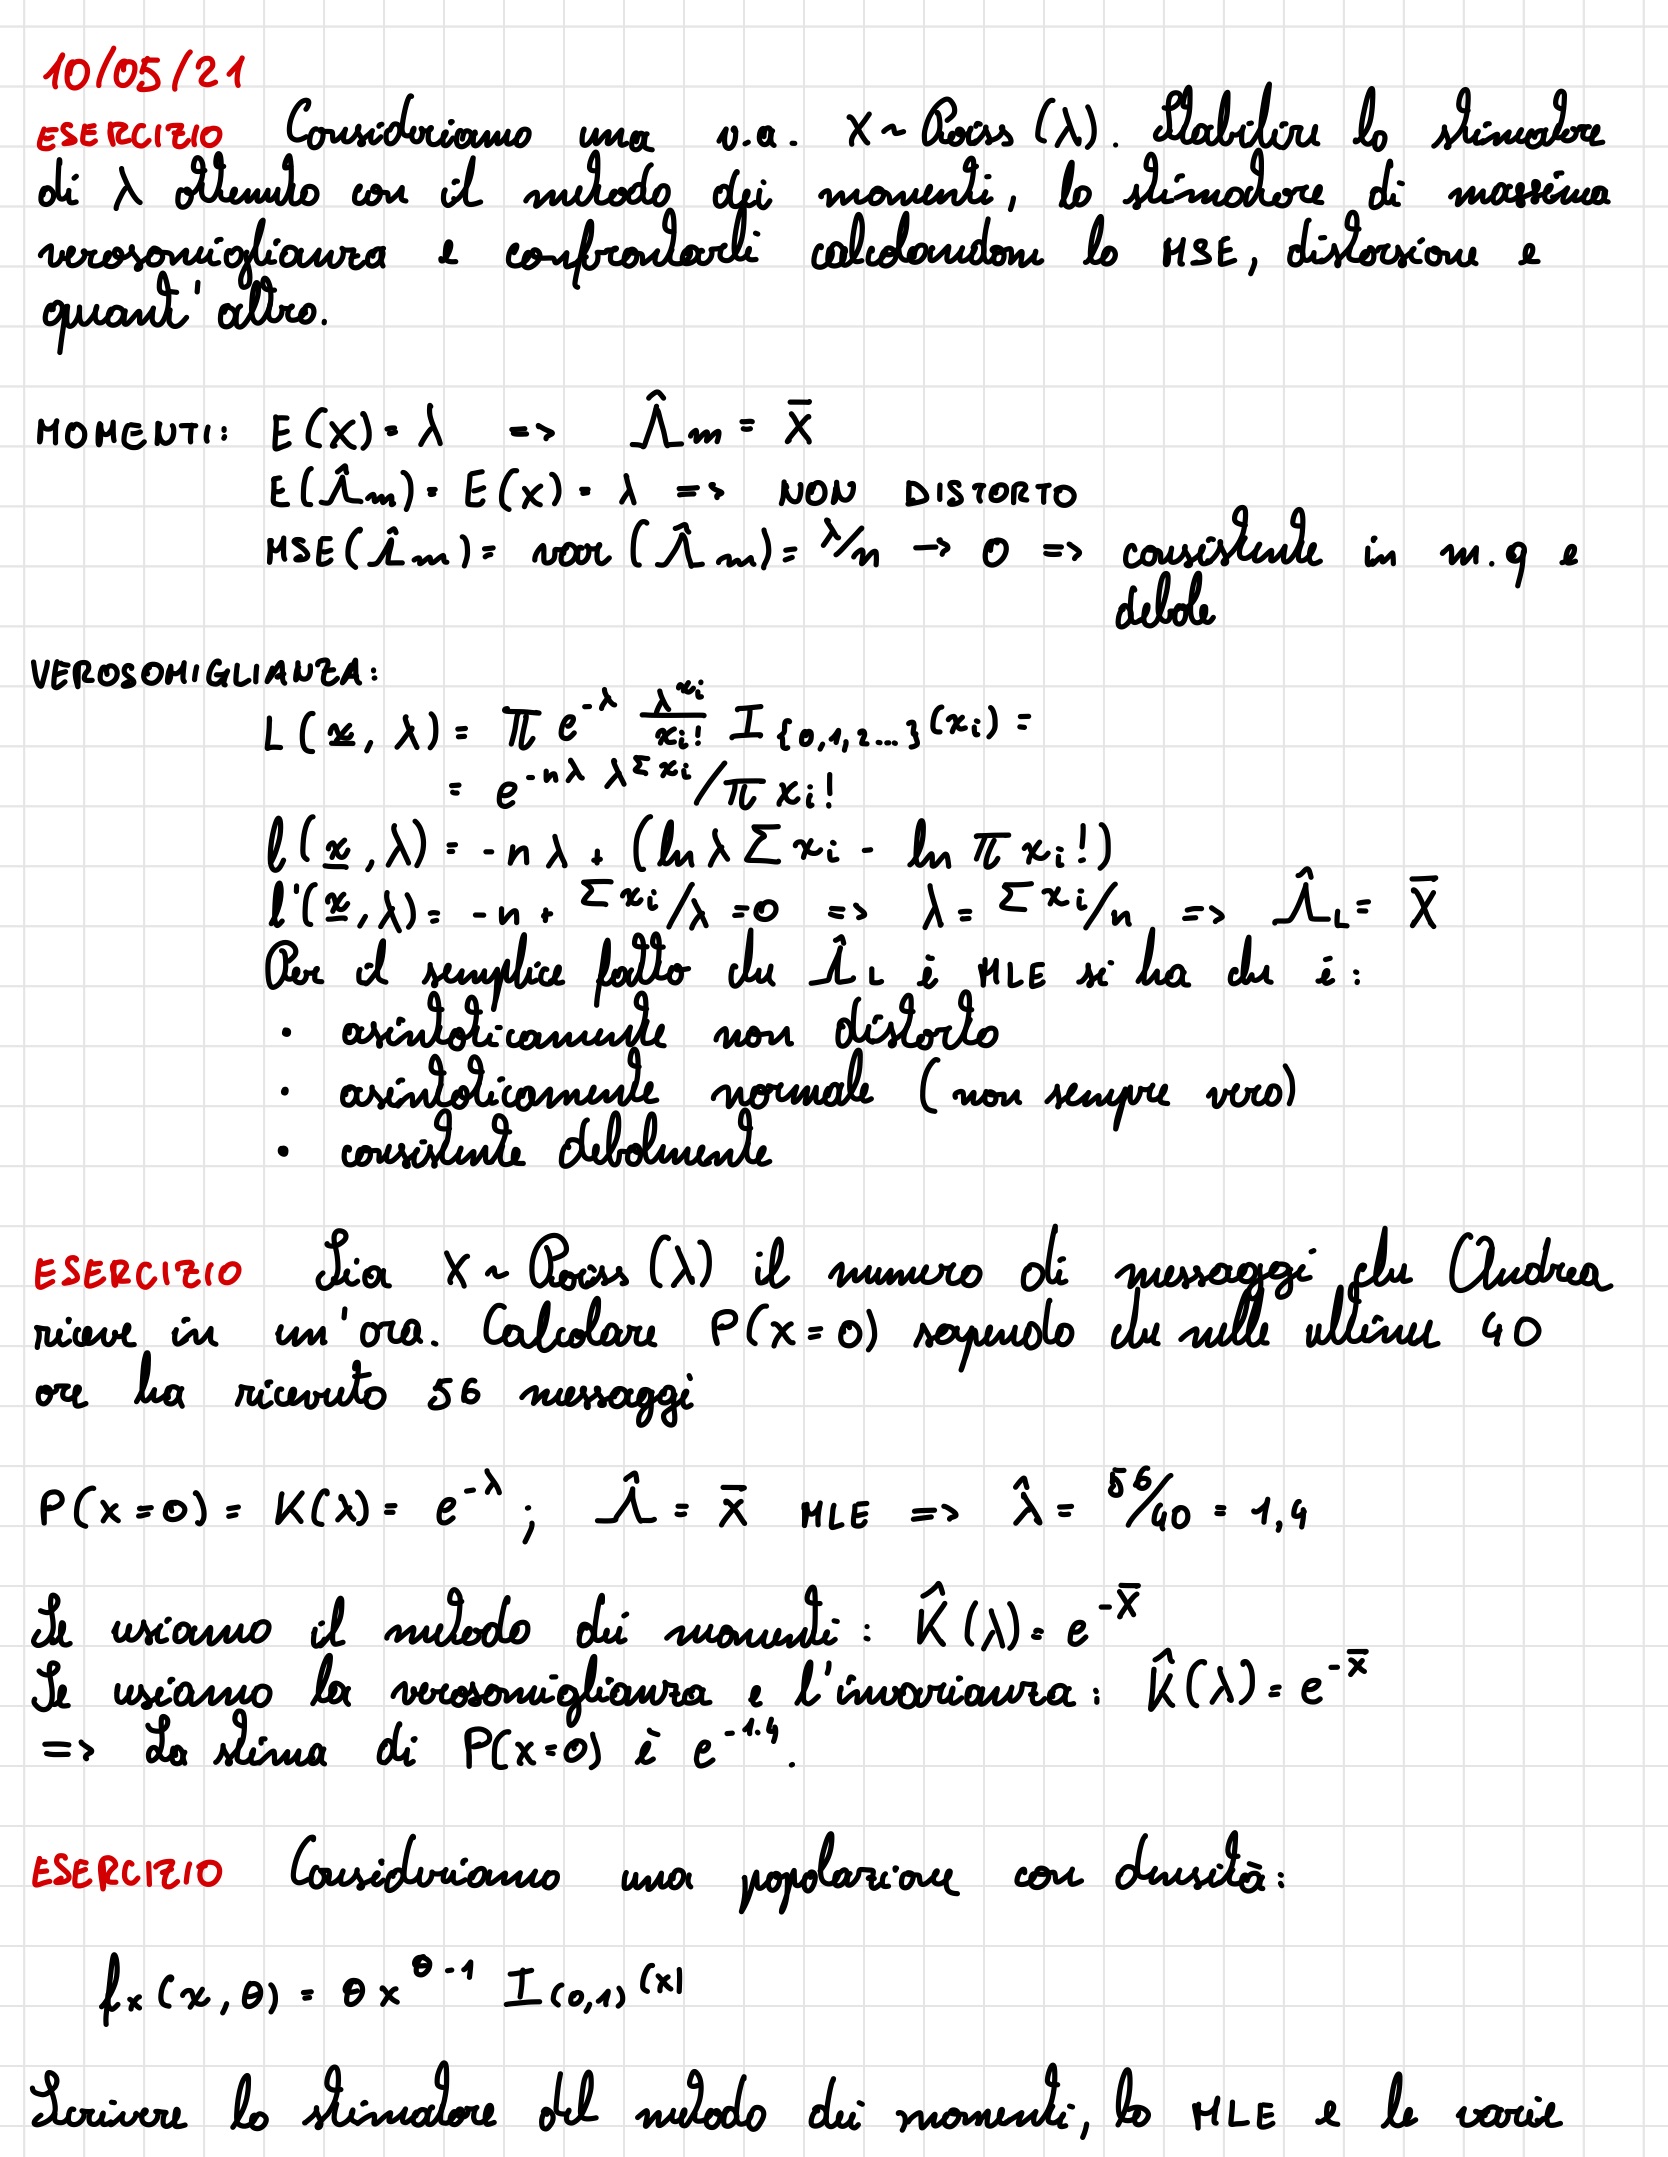 10/05/21
ESERCIZIO Consideriamo una v.a. X ~ Poiss (λ). Stabilire lo stimatore
di λ ottenuto con il metodo dei momenti, lo stimatore di massima
verosomiglianza e confrontarli calcolandone lo MSE, distorsione e
quant'altro.
MOMENTI: E(X) = λ => Λ̂m = X̄
E(Λ̂m) = E(X) = λ => NON DISTORTO
MSE(Λ̂m) = var(Λ̂m) = λ/n → 0 => consistente in m.q e
debole
VEROSOMIGLIANZA:
L(x, λ) = π e^{-λ} λ^{xi}/xi! I_{{0,1,2...}}(xi) =
= e^{-nλ} λ^{Σxi}/π xi!
l(x, λ) = -nλ + (ln λ Σ xi - ln π xi!)
l'(x, λ) = -n + Σxi/λ = 0 => λ = Σxi/n => Λ̂L = X̄
Per il semplice fatto che Λ̂L è MLE si ha che è:
• asintoticamente non distorto
• asintoticamente normale (non sempre vero)
• consistente debolmente
ESERCIZIO Sia X ~ Poiss (λ) il numero di messaggi che Andrea
riceve in un'ora. Calcolare P(x=0) sapendo che nelle ultime 40
ore ha ricevuto 56 messaggi
P(x=0) = K(λ) = e^{-λ}; Λ̂ = X̄ MLE => λ̂ = 56/40 = 1,4
Se usiamo il metodo dei momenti: K̂(λ) = e^{-X̄}
Se usiamo la verosomiglianza e l'invarianza: K̂(λ) = e^{-X̄}
=> La stima di P(x=0) è e^{-1.4}.
ESERCIZIO Consideriamo una popolazione con densità:
fx(x, θ) = θ x^{θ-1} I_{(0,1)}(x)
Scrivere lo stimatore del metodo dei momenti, lo MLE e le varie